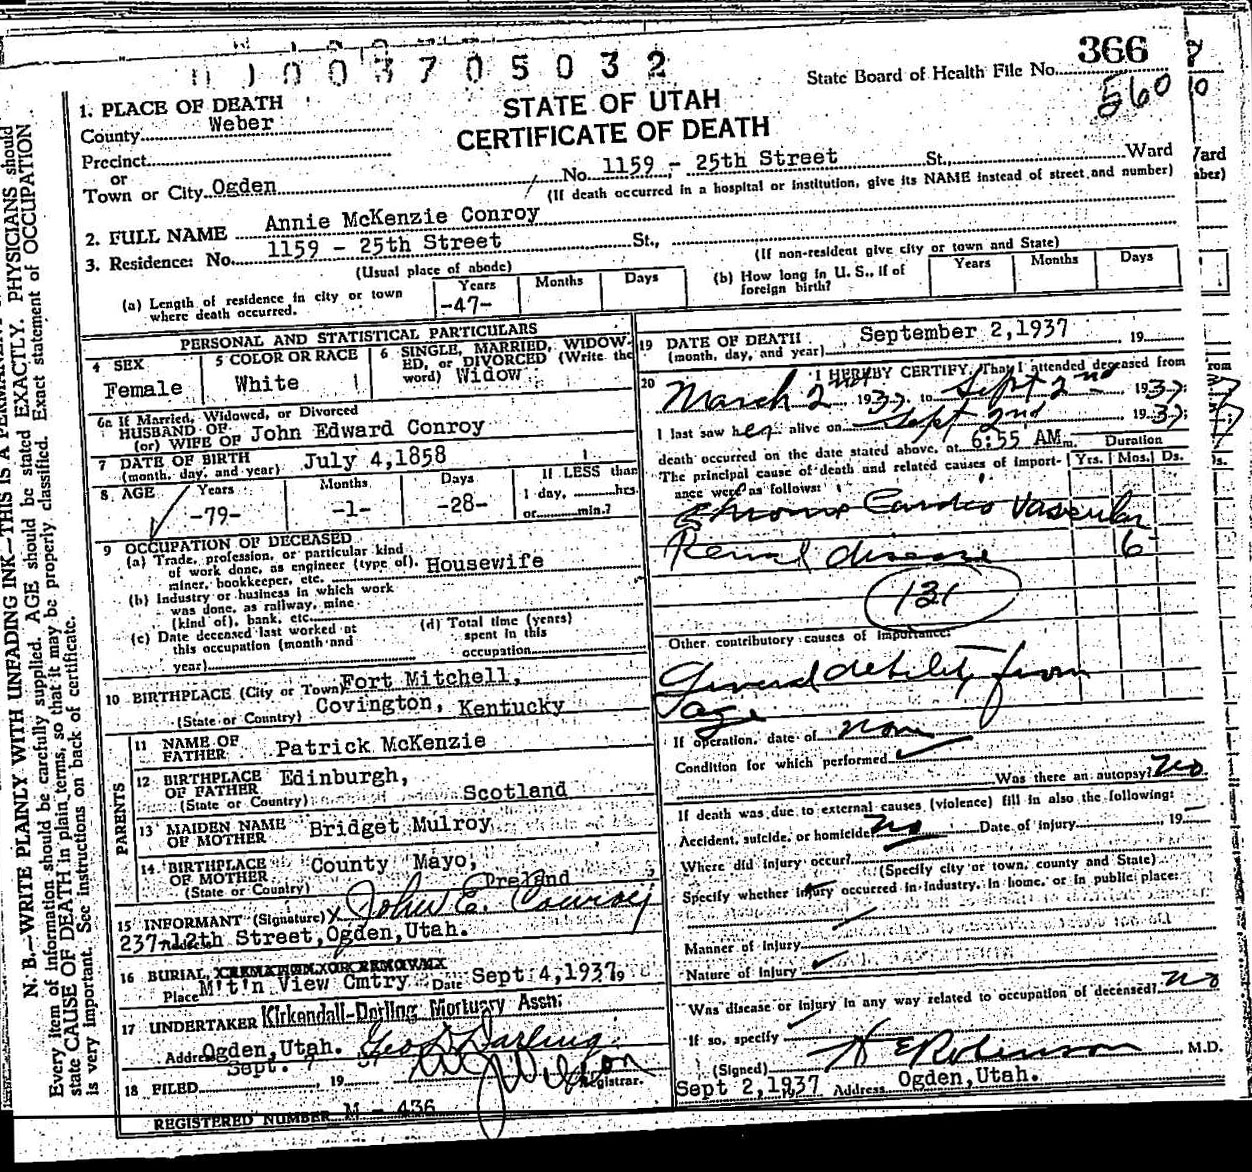 003705032
State Board of Health File No. 366
560
STATE OF UTAH
CERTIFICATE OF DEATH
1. PLACE OF DEATH
County Weber
Precinct
or
Town or City Ogden No. 1159 - 25th Street St., Ward
(If death occurred in a hospital or institution, give its NAME instead of street and number)
2. FULL NAME Annie McKenzie Conroy
3. Residence: No. 1159 - 25th Street St.,
(Usual place of abode) (If non-resident give city or town and State)
(a) Length of residence in city or town where death occurred. Years -47- Months Days
(b) How long in U. S., if of foreign birth? Years Months Days
PERSONAL AND STATISTICAL PARTICULARS
4 SEX Female
5 COLOR OR RACE White
6 SINGLE, MARRIED, WIDOWED, or DIVORCED (Write the word) Widow
6a If Married, Widowed, or Divorced
HUSBAND OF
(or) WIFE OF John Edward Conroy
7 DATE OF BIRTH (month, day, and year) July 4,1858
8 AGE Years -79- Months -1- Days -28- If LESS than 1 day, hrs. or min.?
9 OCCUPATION OF DECEASED
(a) Trade, profession, or particular kind of work done, as engineer (type of), miner, bookkeeper, etc. Housewife
(b) Industry or business in which work was done, as railway, mine (kind of), bank, etc.
(c) Date deceased last worked at this occupation (month and year)
(d) Total time (years) spent in this occupation
10 BIRTHPLACE (City or Town) Fort Mitchell,
(State or Country) Covington, Kentucky
PARENTS
11 NAME OF FATHER Patrick McKenzie
12 BIRTHPLACE OF FATHER Edinburgh,
(State or Country) Scotland
13 MAIDEN NAME OF MOTHER Bridget Mulroy
14 BIRTHPLACE OF MOTHER County Mayo,
(State or Country) Ireland
15 INFORMANT (Signature) x John E. Conroy
Address 237-12th Street,Ogden,Utah.
16 BURIAL, CREMATION OR REMOVAL
Place M't'n View Cmtry Date Sept 4,1937 19
17 UNDERTAKER Kirkendall-Darling Mortuary Assn.
Address Ogden,Utah. Geo D Darling
18 FILED Sept. 7, 19 37
Registrar.
REGISTERED NUMBER M - 436
19 DATE OF DEATH (month, day, and year) September 2,1937 19
20 I HEREBY CERTIFY, That I attended deceased from
March 2nd 1937, to Sept 2nd 1937;
I last saw her alive on Sept 2nd 1937;
death occurred on the date stated above, at 6:55 AM m.
The principal cause of death and related causes of importance were as follows:
Duration Yrs. Mos. Ds.
Chronic Cardio Vascular
Renal disease 6
131
Other contributory causes of importance:
General debility from
age
If operation, date of none
Condition for which performed
Was there an autopsy? no
If death was due to external causes (violence) fill in also the following:
Accident, suicide, or homicide no Date of injury 19
Where did injury occur?
(Specify city or town, county and State)
Specify whether injury occurred in industry, in home, or in public place:
Manner of injury
Nature of injury
Was disease or injury in any way related to occupation of deceased? no
If so, specify
(Signed) H E Robinson M.D.
Sept 2,1937 Address Ogden,Utah.
N. B.—WRITE PLAINLY WITH UNFADING INK—THIS IS A PERMANENT
Every item of information should be carefully supplied. AGE should be stated EXACTLY. PHYSICIANS should
state CAUSE OF DEATH in plain terms, so that it may be properly classified. Exact statement of OCCUPATION
is very important. See Instructions on back of certificate.